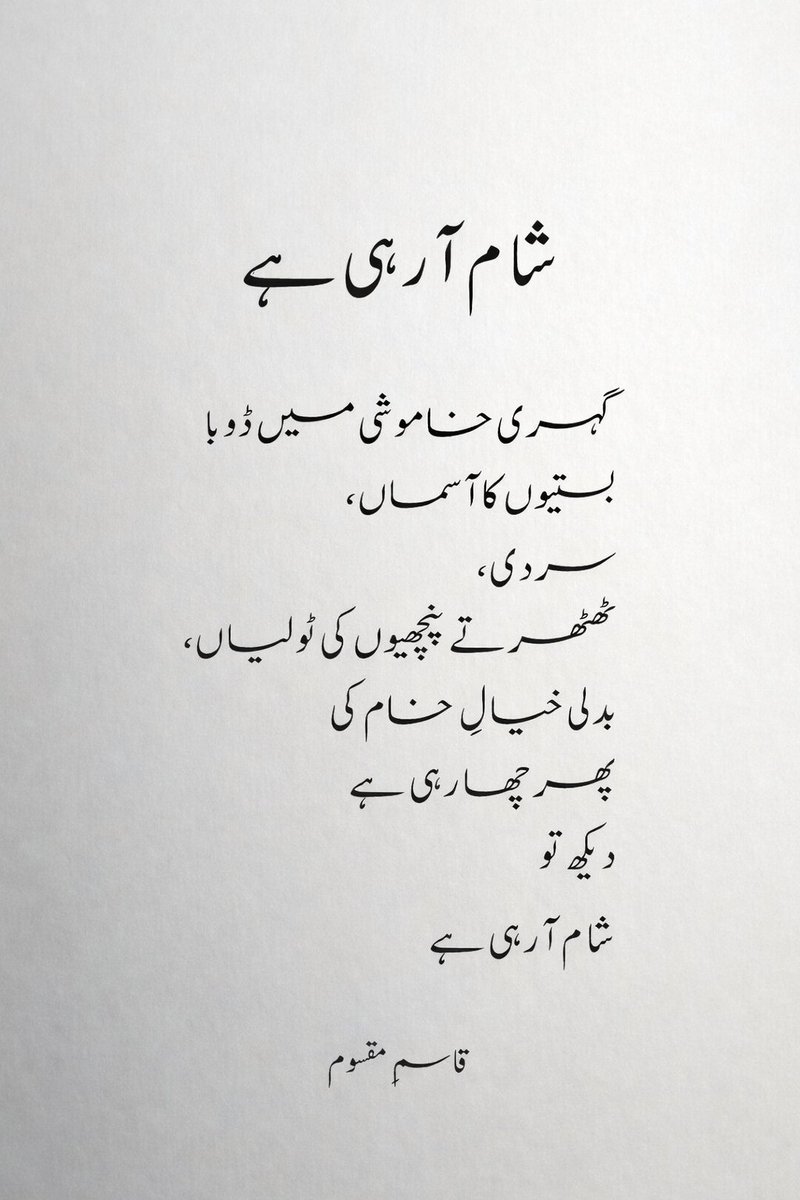 شام آ رہی ہے
گہری خاموشی میں ڈوبا
بستیوں کا آسماں،
سردی،
ٹھٹھرتے پنچھیوں کی ٹولیاں،
بدلی خیالِ خام کی
پھر چھا رہی ہے
دیکھ تو
شام آ رہی ہے
قاسمِ مقسوم